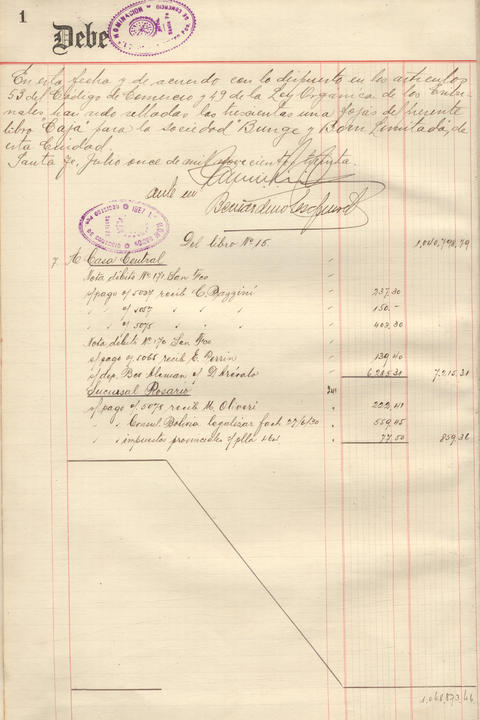 1
Debe
En esta fecha y de acuerdo con lo dispuesto en los articulos
53 del Código de Comercio y 49 de la Ley Organica de los Tribu-
nales han sido selladas las trescientas una fojas del presente
libro Caja para la sociedad Bunge y Born Limitada, de
esta Ciudad.
Santa Fe, Julio once de mil novecientos treinta.
ante mi
Del libro Nº 15. 1,040,798,79
7 A Casa Central
Nota débito Nº 171 San Fco
s/pago o/ 5027 recib C. Boggini 237.30
" " o/ 5057 " " " 150.-
" " o/ 5075 " " " 402.30
Nota débito Nº 170 San Fco
s/pago o/ 5065 recib E. Perrin 139.40
s/dep. Bco Aleman o/ D. Arévalo 6,285.31 7,215.31
Sucursal Rosario 241
s/pago o/ 5078 recib M. Oliveri 222,41
" " Consul. Bolivia legalizar fact 27/6/30 559,45
" " impuestos provinciales o/ plla 464 77.50 859,36
1,048,873,46